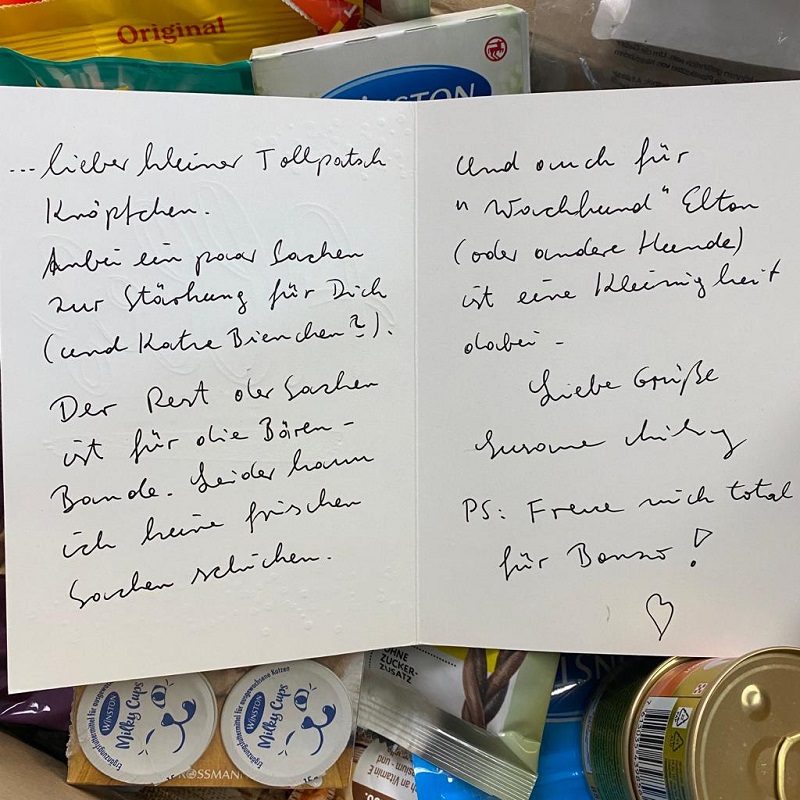 Original
WINSTON
... lieber kleiner Tollpatsch
Knöpfchen.
Anbei ein paar Sachen
zur Stärkung für Dich
(und Katze Bienchen?).
Der Rest der Sachen
ist für die Bären-
Bande. Leider kann
ich keine frischen
Sachen schicken.
Und auch für
"Wachhund" Elton
(oder andere Hunde)
ist eine Kleinigkeit
dabei -
Liebe Grüße
Susanne
PS: Freue mich total
für Bonzo!
OHNE
ZUCKER-
ZUSATZ
Ergänzungsfuttermittel für ausgewachsene Katzen
WINSTON
Milky Cups
Ergänzungsfuttermittel für ausgewachsene Katzen
WINSTON
Milky Cups
ROSSMANN
an Vitamin E